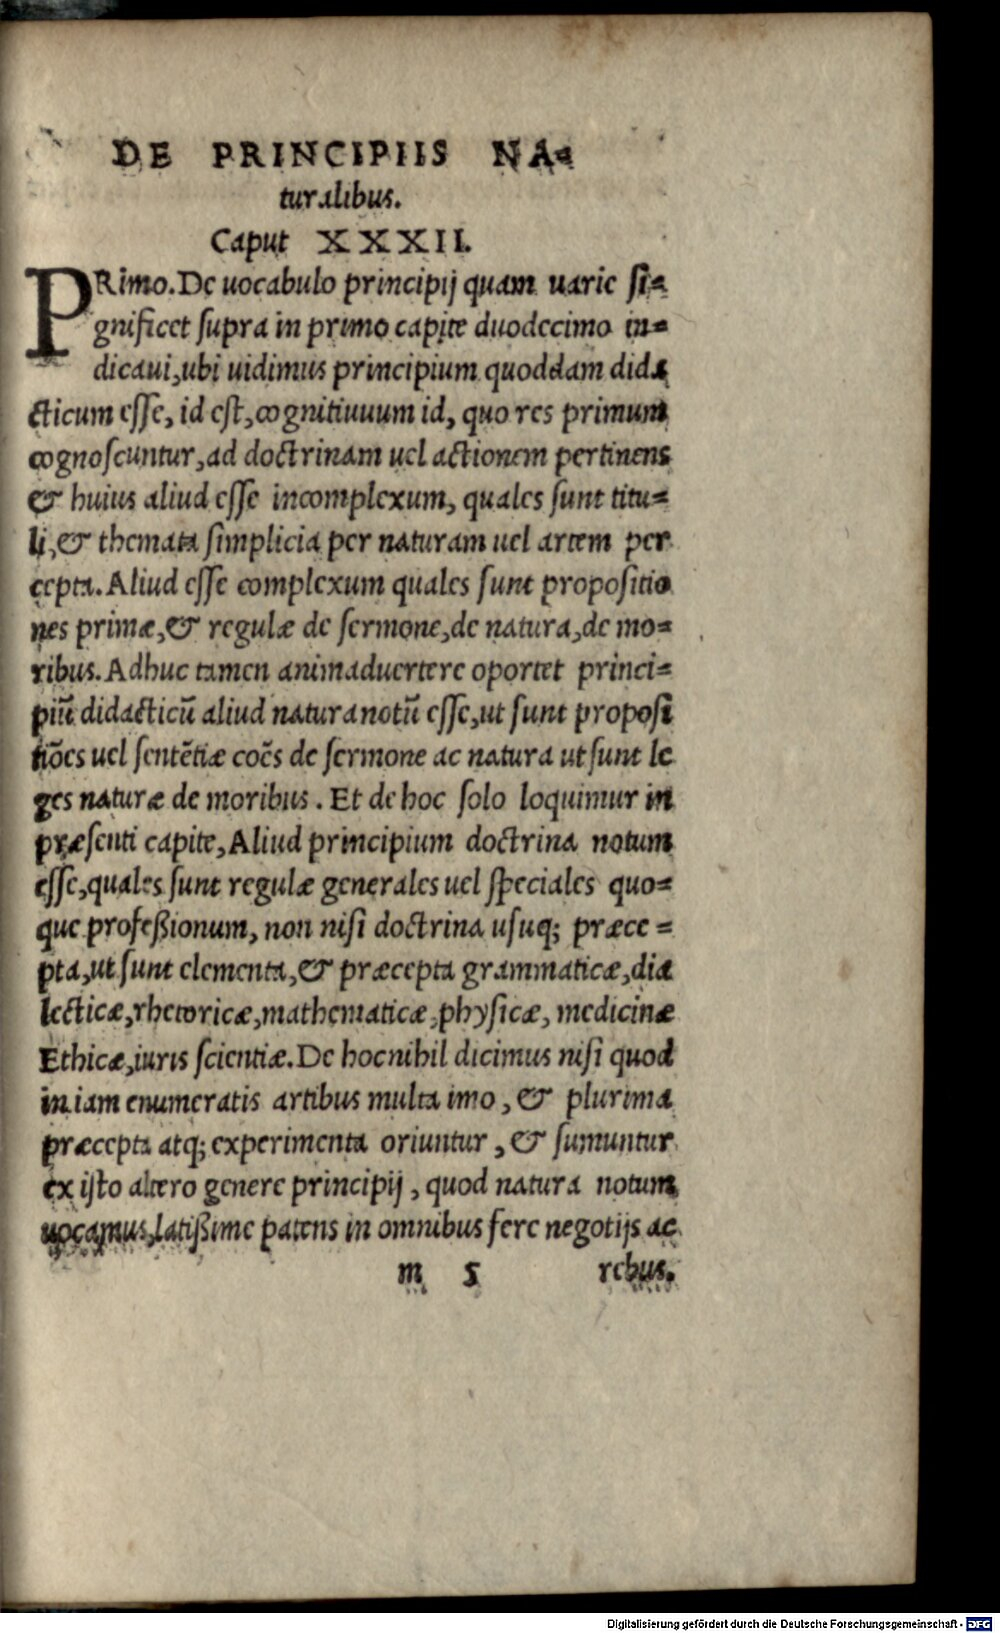 DE PRINCIPIIS NA=
turalibus.
Caput XXXII.
PRimo. De uocabulo principij quam uarie si=
gnificet supra in primo capite duodecimo in=
dicaui, ubi uidimus principium quoddam dida
cticum esse, id est, cognitiuuum id, quo res primum
cognoscuntur, ad doctrinam uel actionem pertinens
& huius aliud esse incomplexum, quales sunt titu=
li, & themata simplicia per naturam uel artem per
cepta. Aliud esse complexum quales sunt propositio
nes primæ, & regulæ de sermone, de natura, de mo=
ribus. Adhuc tamen animaduertere oportet princi=
piũ didacticũ aliud natura notũ esse, ut sunt proposi
tiões uel sentẽtiæ coẽs de sermone ac natura ut sunt le
ges naturæ de moribus. Et de hoc solo loquimur in
præsenti capite, Aliud principium doctrina notum
esse, quales sunt regulæ generales uel speciales quo=
que profeßionum, non nisi doctrina usuq; præce=
pta, ut sunt elementa, & præcepta grammaticæ, dia
lecticæ, rhetoricæ, mathematicæ, physicæ, medicinæ
Ethicæ, iuris scientiæ. De hoc nihil dicimus nisi quod
in iam enumeratis artibus multa imo, & plurima
præcepta atq; experimenta oriuntur, & sumuntur
ex isto altero genere principij, quod natura notum
uocamus, latißime patens in omnibus fere negotijs ac
m 5 rebus.
Digitalisierung gefördert durch die Deutsche Forschungsgemeinschaft - DFG